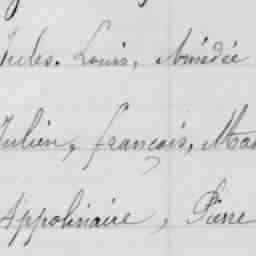 Jules. Louis, Amédée
Julien, françois, Ma
Appolinaire, Pierre